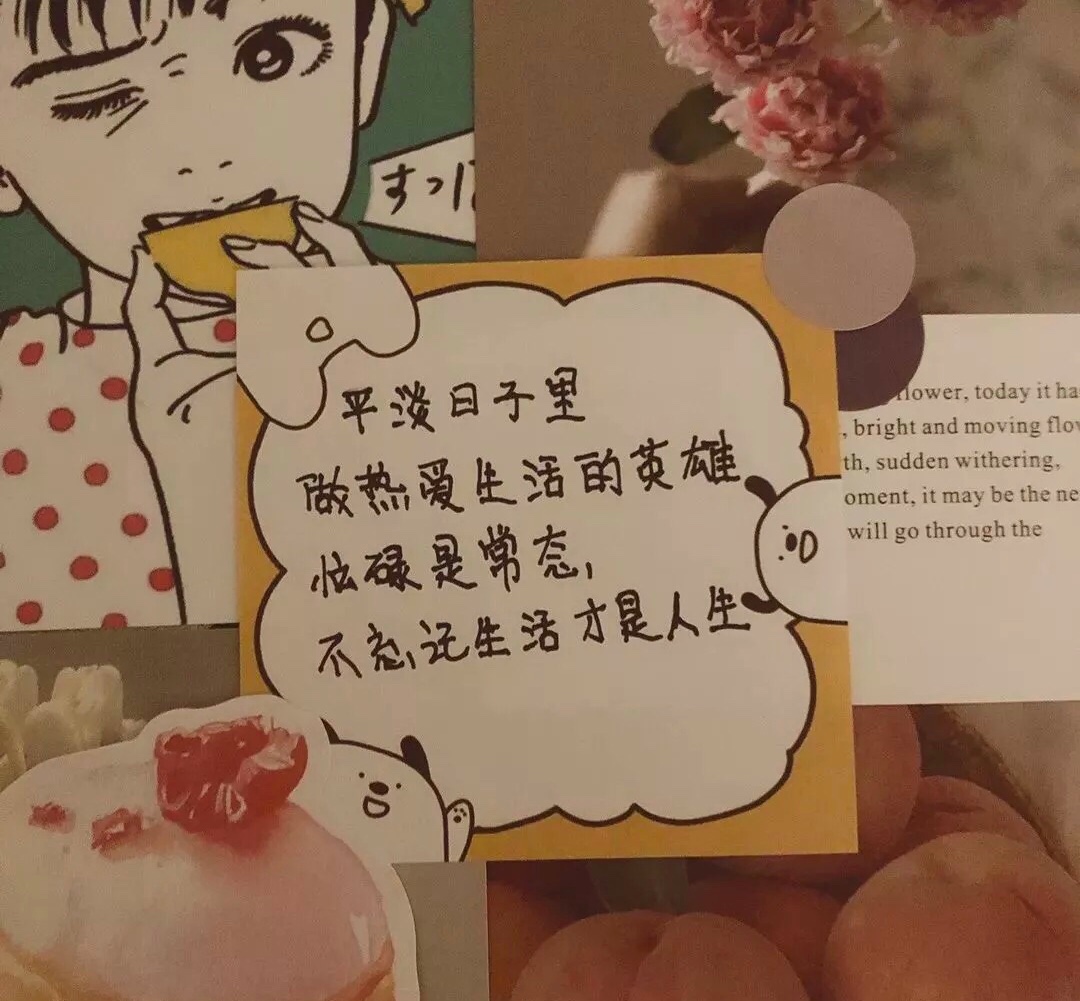 すっ
平淡日子里
做热爱生活的英雄
忙碌是常态,
不忘记生活才是人生
flower, today it ha
, bright and moving flow
th, sudden withering,
oment, it may be the ne
will go through the